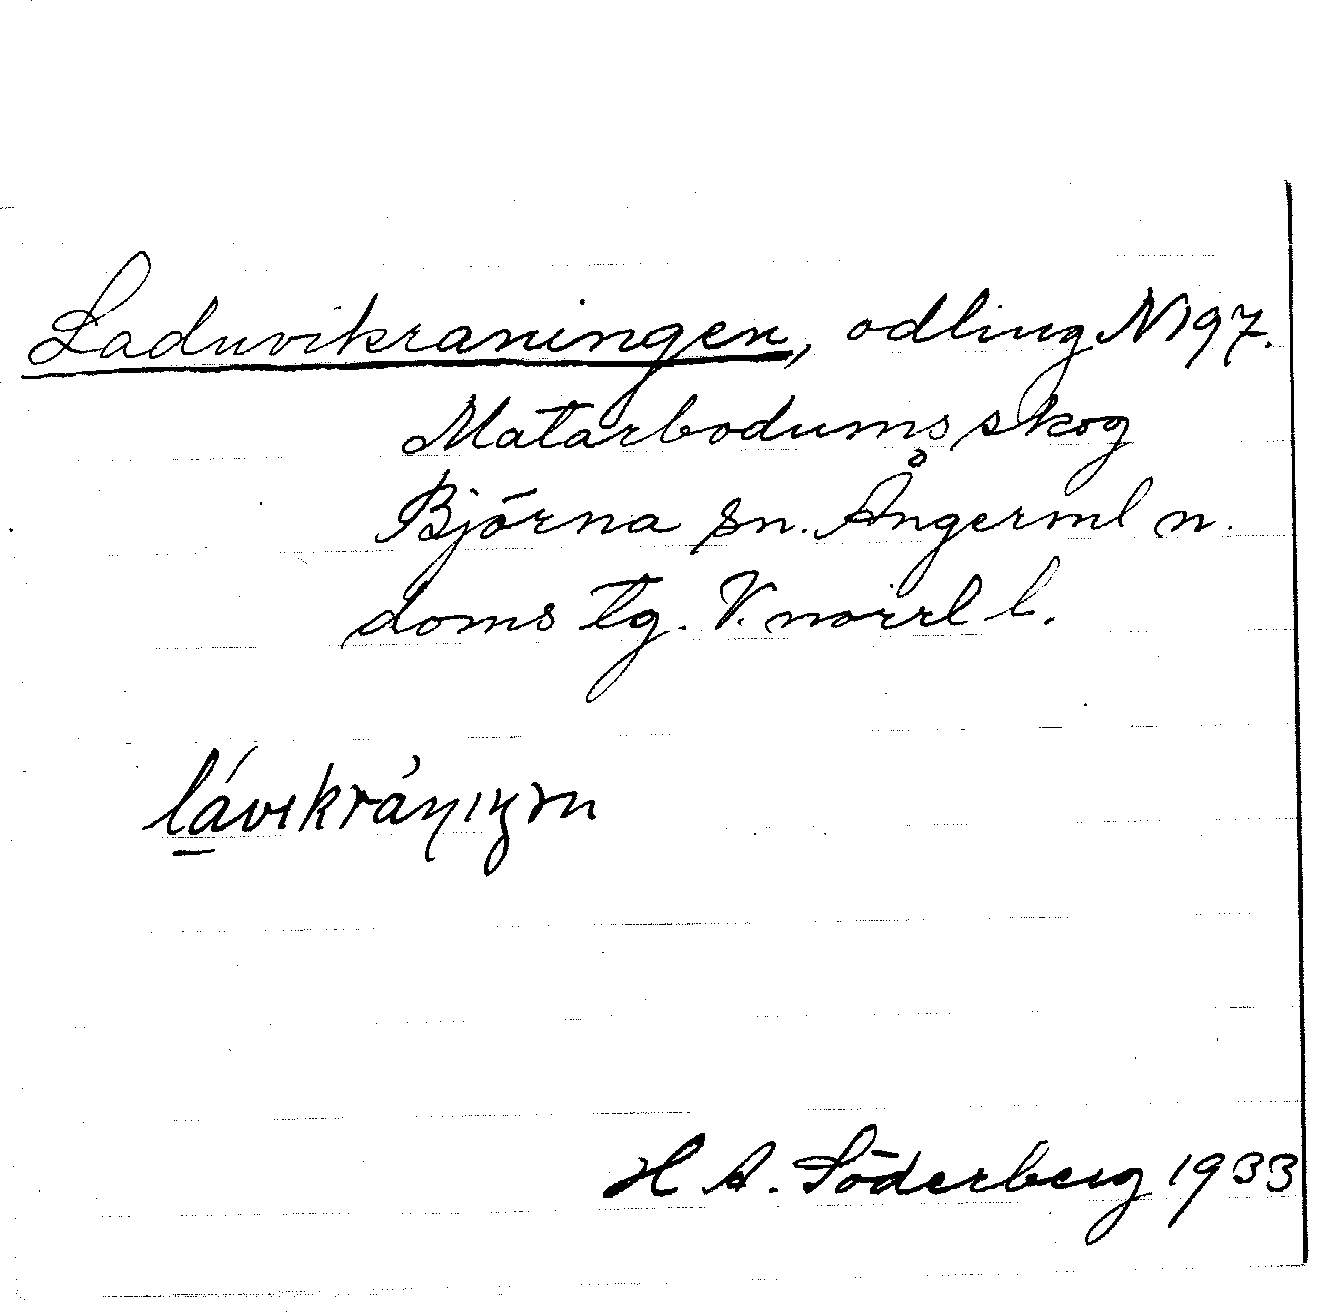 Laduvikraningen, odling N197.
Matarbodums skog
Björna sn. Ångerml n.
doms tg. V. norrl l.
lávıkránıŋən
H A. Söderberg 1933